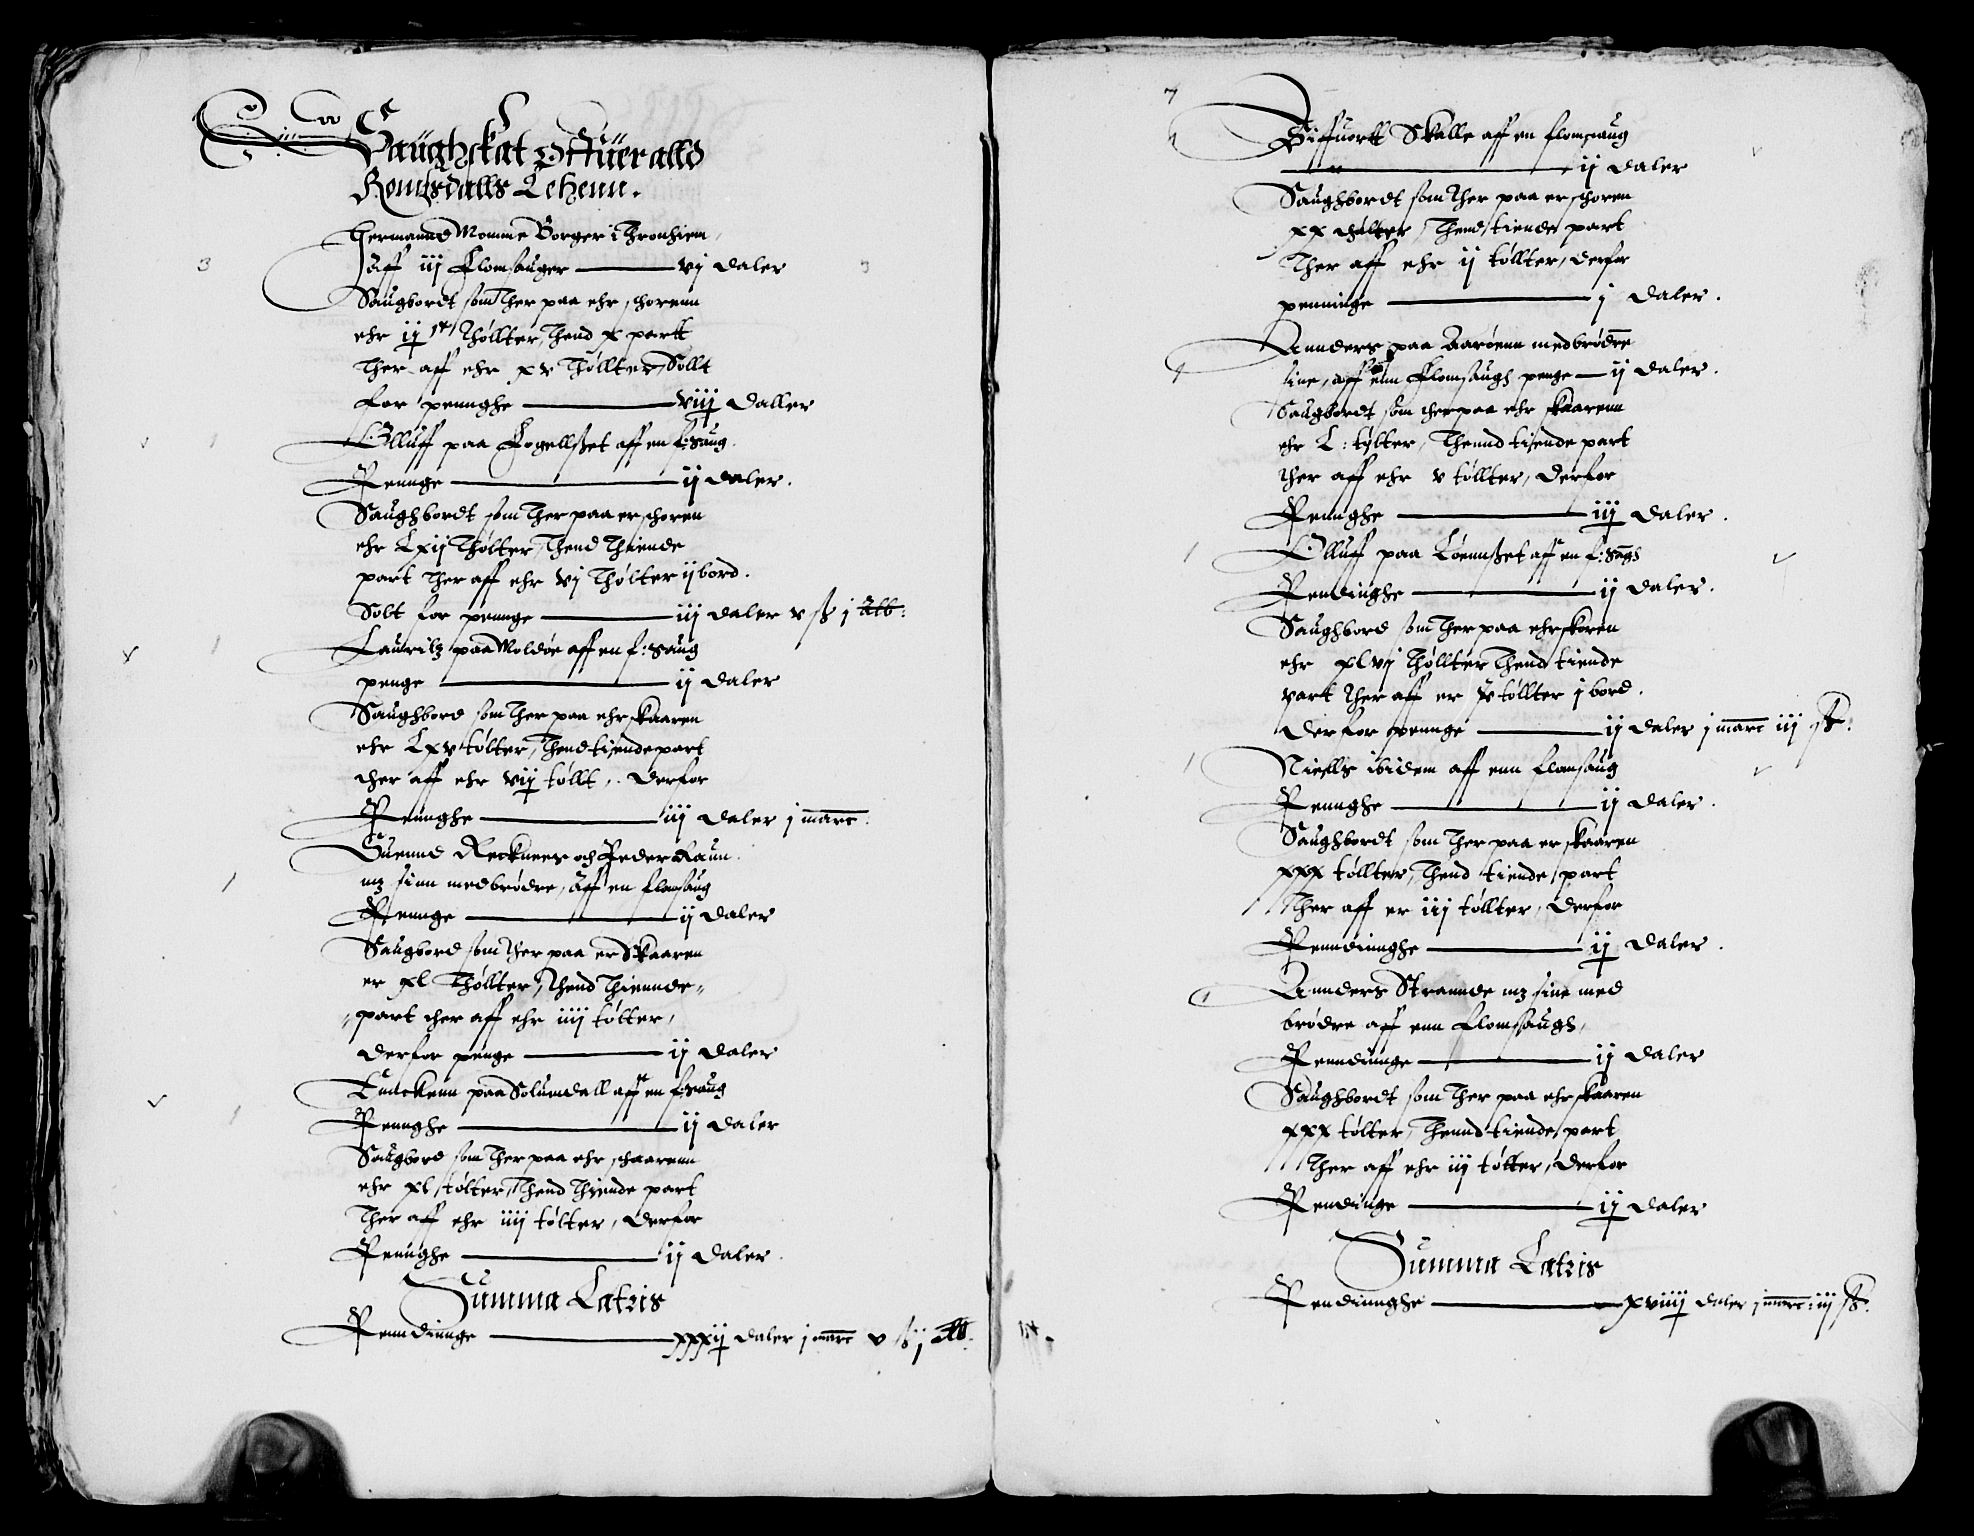 Saughskat Offuer alld
Romsdalls Lehenn.
Hermannd Momme Borger i Thronhiem
3 Aff iij Flomsauger — vj daler
Saugbordt som Ther paa ehr schorenn
ehr ij Thøllter, Thend x partt
Ther aff ehr xv Thøllter, Sollt
for pennghe — viij daller
1 Olluff paa Fogellsset aff en f: saug
Pennge — ij daler.
Saughbordt som Ther paa er schoren
ehr Lxij Thølter, Thend Thiende
part Ther aff ehr vj Thølter ij bord.
Solt for pennge — iij daler v ß j alb:
1 Lauritz paa Moldøe aff en f: saug
penge — ij daler
Saughbord som Ther paa ehr skaaren
ehr Lxv tølter, Thend tiende part
ther aff ehr vij tøllt, derfor
Pennghe — iij daler j marc.
Suennd Reckness och Peder Raun
1 mz sinn medbrødre, aff en flomsaug
Pennge — ij daler
Saugbord som Ther paa er Skaaren
er xl Thøllter, Thend Thiennde
part ther aff ehr iiij tøltter,
derfor penge — ij daler
1 paa Solumdall aff en f: saug
Pennghe — ij daler
Saugbord som Ther paa ehr schaarenn
ehr xl tølter, Thend Thiende part
Ther aff ehr iiij tølter, derfor
Pennghe — ij daler.
Summa Latris
Penndinnge — xxxij daler j marc v ß j alb.
7
1 Siffuortt Skalle aff en flomsaug
— ij daler
Saughbordt som Ther paa er schoren
xx thølter, Thend tiende part
Ther aff ehr ij tøllter, derfor
penninge — j daler.
Annders paa Aarøenn medbrødre
1 sine, aff enn Flomsaugh penge — ij daler.
Saugbordt som ther paa ehr skaarenn
ehr L: tylter, Thennd tiende part
ther aff ehr v tøllter, derfor
Pennghe — iij daler.
1 Olluff paa Løennsset aff en f: sagh
Pendinghe — ij daler.
Saughbord som Ther paa ehr skoren
ehr xlvj Thøllter Thend tiende
part Ther aff er v tøllter j bord.
Derfor pennge — ij daler j marc iij sk:
1 Niells ibidem aff enn flomsaug
Pennghe — ij daler.
Saughbordt som Ther paa er skaaren
xxx tøllter, Thend tiende part
Ther aff er iij tøllter, derfor
Penndinnghe — ij daler.
1 Annders Strannde mz sine med
brødre aff enn flomsaugh,
Penndinnge — ij daler
Saughbordt som Ther paa ehr skaaren
xxx tølter, Thennd tiende part
Ther aff ehr iij tøltter, derfor
Pendinge — ij daler
Summa Latris
Pendinnghe — xviiij daler j marc: iij sk: